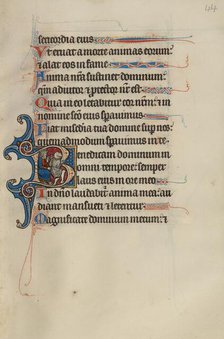 sericordia eius
Ut eruat a morte animas eorum:
et alat eos in fame
Anima nr̄a sustinet dominum:
quoniam adiutor et protector nr̄ est
Quia in eo letabitur cor nr̄m: et in
nomine sc̄o eius sperauimus
Fiat misericordia tua domine super nos:
quemadmodum sperauimus in te
Benedicam dominum in
omni tempore: semper
laus eius in ore meo
In dn̄o laudabitur anima mea: au
diant mansueti et letentur
Magnificate dominum mecum: et